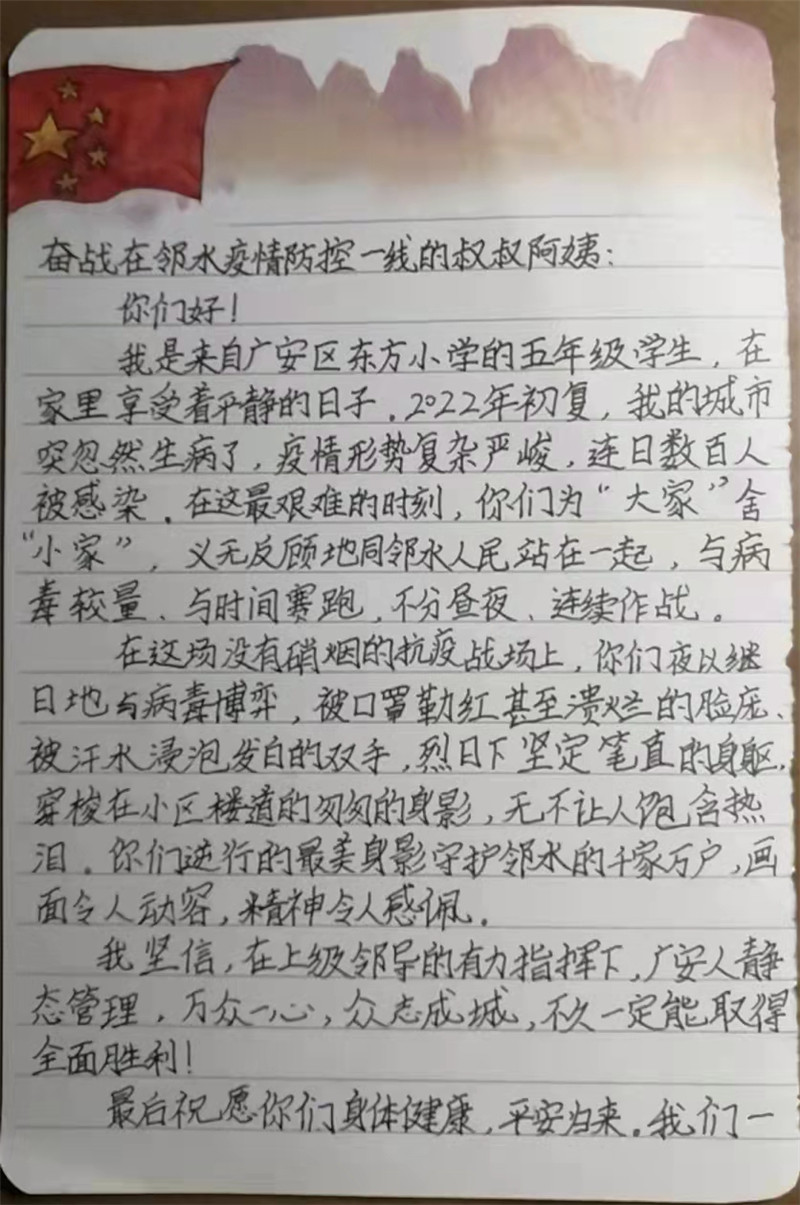 奋战在邻水疫情防控一线的叔叔阿姨：
你们好！
我是来自广安区东方小学的五年级学生，在
家里享受着平静的日子。2022年初复，我的城市
突忽然生病了，疫情形势复杂严峻，连日数百人
被感染。在这最艰难的时刻，你们为“大家”舍
“小家”，义无反顾地同邻水人民站在一起，与病
毒较量、与时间赛跑，不分昼夜、连续作战。
在这场没有硝烟的抗疫战场上，你们夜以继
日地与病毒博弈，被口罩勒红甚至溃烂的脸庞、
被汗水浸泡发白的双手，烈日下坚定笔直的身躯，
穿梭在小区楼道的匆匆的身影，无不让人饱含热
泪。你们逆行的最美身影守护邻水的千家万户，画
面令人动容，精神令人感佩。
我坚信，在上级领导的有力指挥下，广安人静
态管理，万众一心，众志成城，不久一定能取得
全面胜利！
最后祝愿你们身体健康，平安归来。我们一